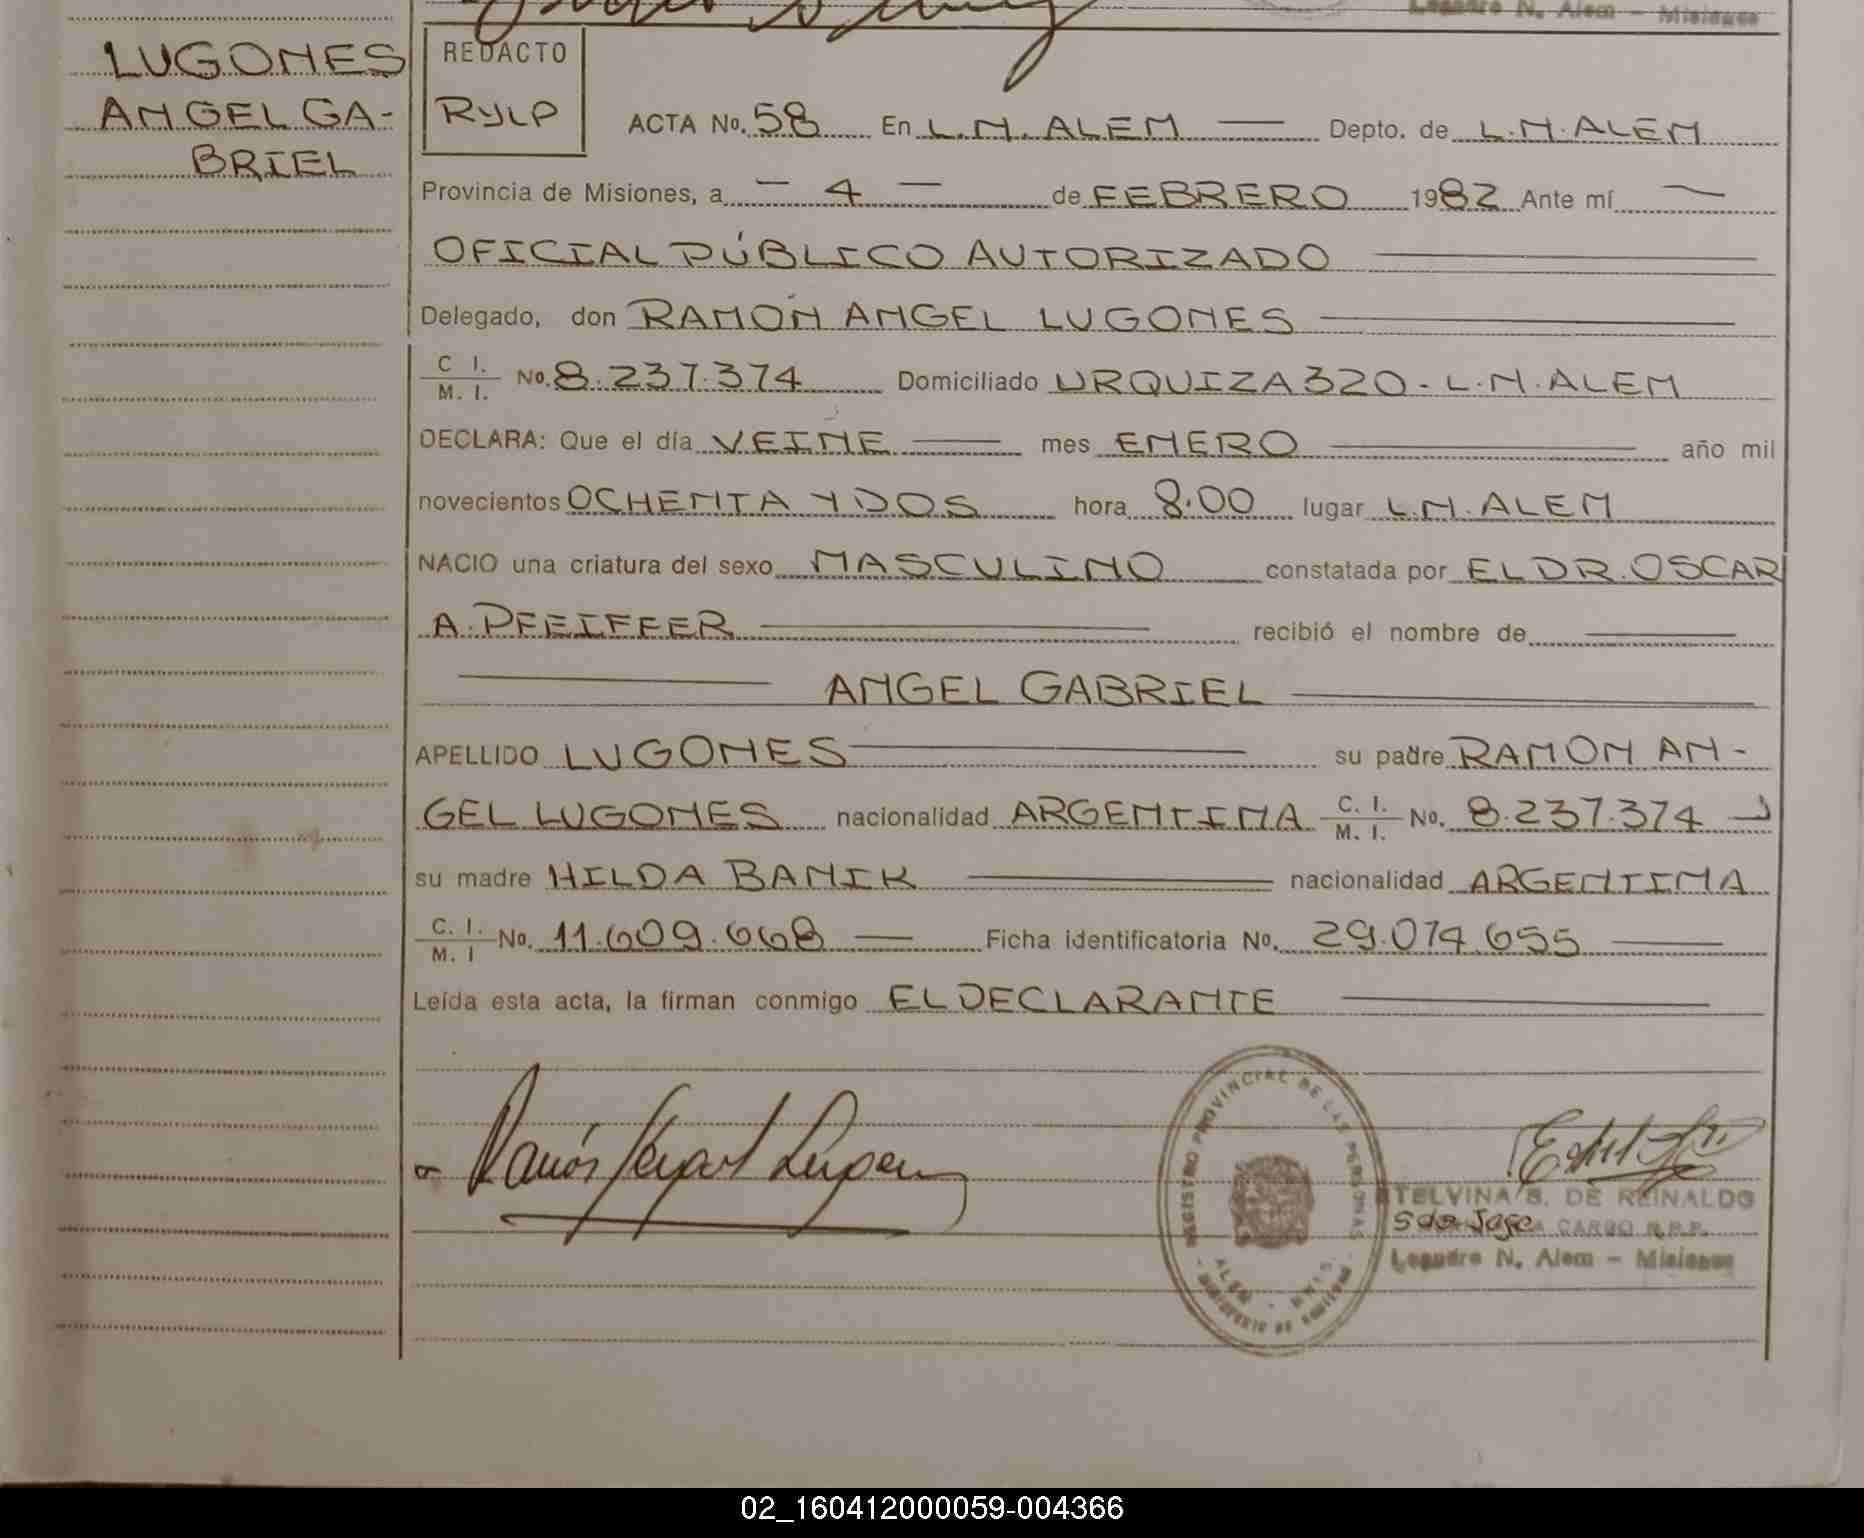 Leandro N. Alem - Misiones
LUGONES
ANGEL GA-
BRIEL
REDACTO
RYLP
ACTA No. 58 En L.N. ALEM Depto. de L.N. ALEM
Provincia de Misiones, a - 4 - de FEBRERO 1982 Ante mí
OFICIAL PÚBLICO AUTORIZADO
Delegado, don RAMÓN ANGEL LUGONES
C I. / M. I. No. 8.237.374 Domiciliado URQUIZA 320 - L.N. ALEM
DECLARA: Que el día VEINE mes ENERO año mil
novecientos OCHENTA Y DOS hora 8.00 lugar L.N. ALEM
NACIO una criatura del sexo MASCULINO constatada por EL DR. OSCAR
A. PFEIFFER recibió el nombre de
ANGEL GABRIEL
APELLIDO LUGONES su padre RAMON AN-
GEL LUGONES nacionalidad ARGENTINA C. I. / M. I. No. 8.237.374
su madre HILDA BANIK nacionalidad ARGENTINA
C. I. / M. I No. 11.609.668 Ficha identificatoria No. 29.074.655
Leída esta acta, la firman conmigo EL DECLARANTE
Ramón Angel Lugones
REGISTRO PROVINCIAL DE LAS PERSONAS
ALEM - MNES.
TELVINA S. DE REINALDO
A CARGO R.P.P.
Leandro N. Alem - Misiones
02_160412000059-004366